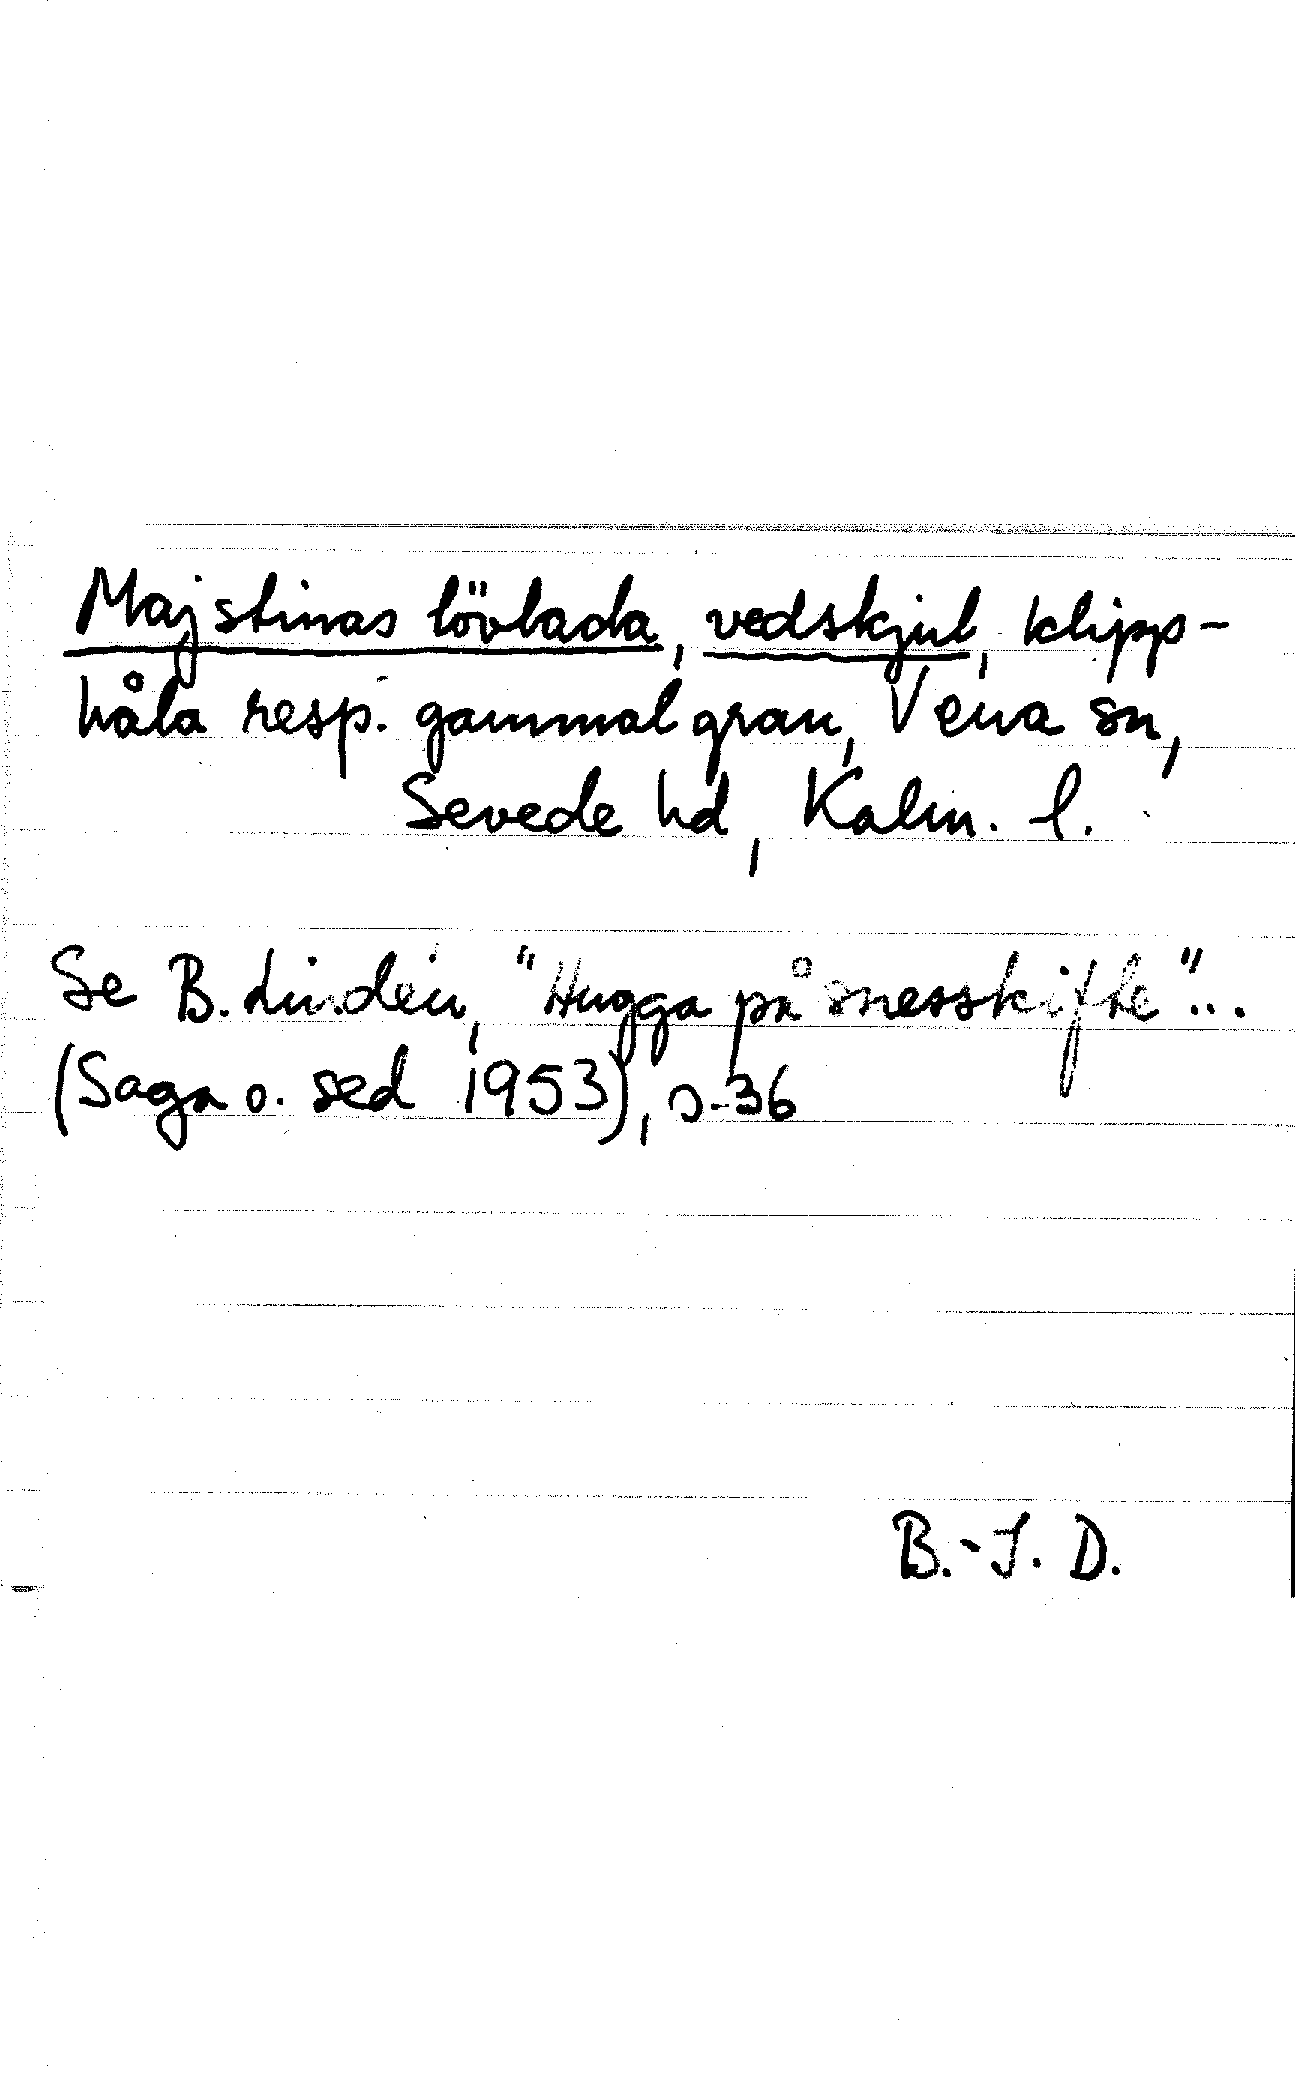 Majstinas lövlada, vedskjul, klipp-
håla resp. gammal gran, Vena sn,
Sevede hd, Kalm. l.
Se B. Lindén, "Hugga på snesskifte"...
(Saga o. sed 1953), s. 36
B.-I. D.